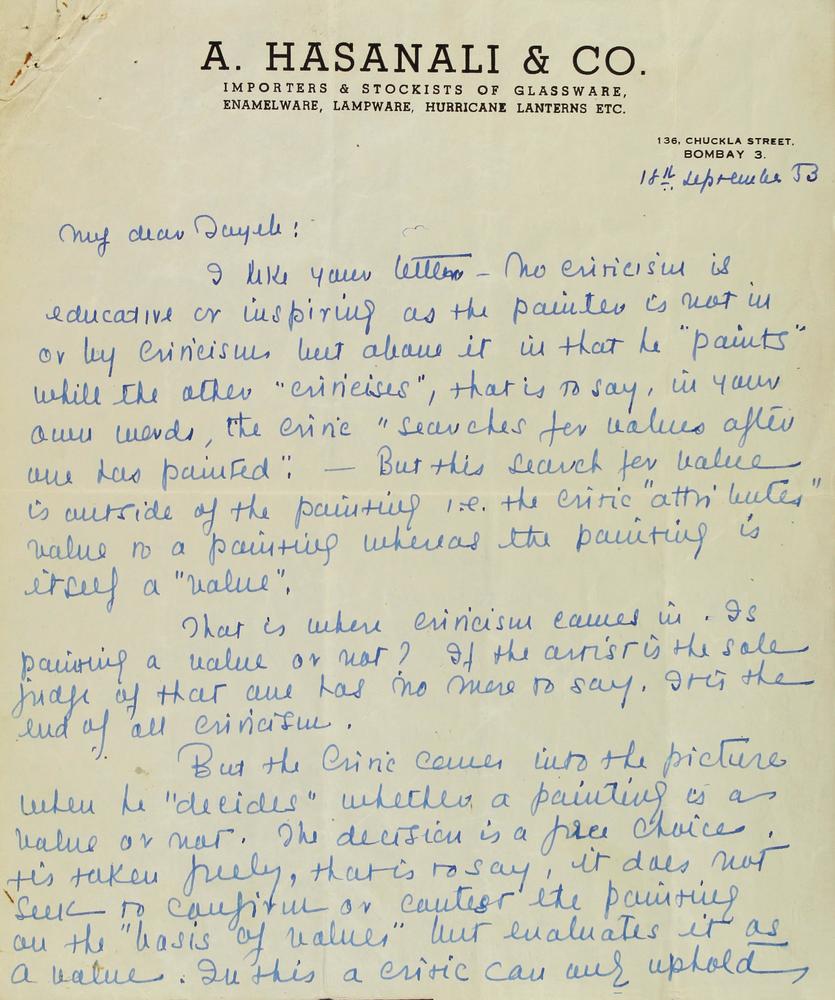 A. HASANALI & CO.
IMPORTERS & STOCKISTS OF GLASSWARE,
ENAMELWARE, LAMPWARE, HURRICANE LANTERNS ETC.
136, CHUCKLA STREET.
BOMBAY 3.
18th September 53
My dear Tayeb:
I like your letter - No criticism is
educative or inspiring as the painter is not in
or by Criticism but above it in that he "paints"
while the other "criticises", that is to say, in your
own words, the critic "searches for values after
one has painted". — But this search for value
is outside of the painting i.e. the critic "attributes"
value to a painting whereas the painting is
itself a "value".
That is where criticism comes in. Is
painting a value or not? If the artist is the sole
judge of that one has no more to say. It is the
end of all criticism.
But the Critic comes into the picture
when he "decides" whether a painting is a
value or not. The decision is a free choice.
tis taken freely, that is to say, it does not
seek to confirm or contest the painting
on the "basis of values" but evaluates it as
a value. In this a critic can only uphold